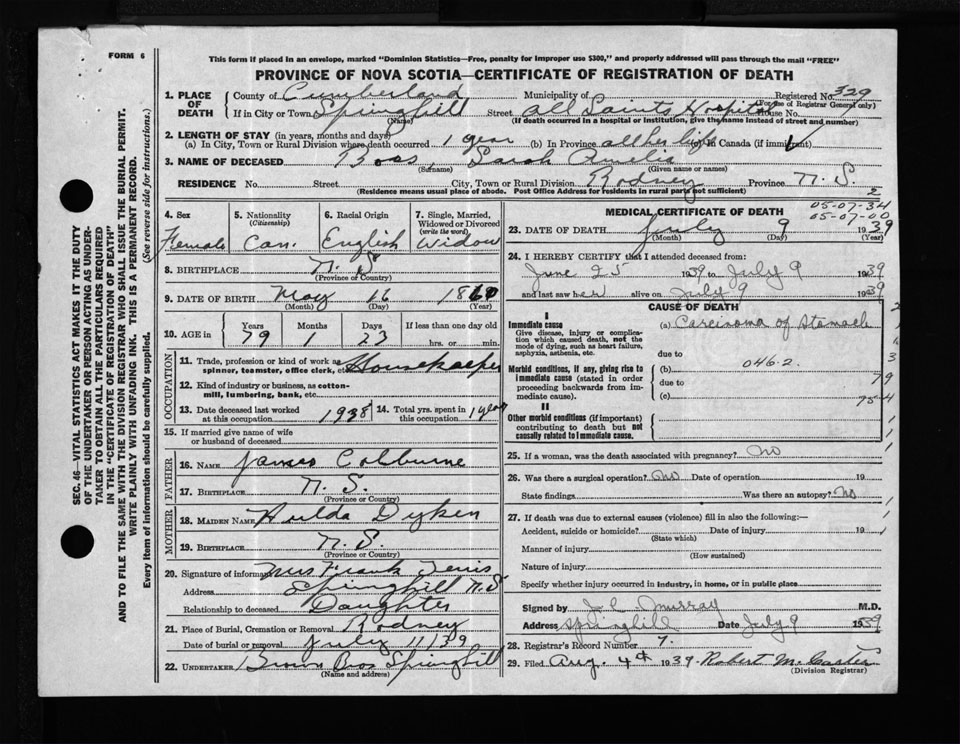 FORM 6
This form if placed in an envelope, marked "Dominion Statistics—Free, penalty for improper use $300," and properly addressed will pass through the mail "FREE"
PROVINCE OF NOVA SCOTIA—CERTIFICATE OF REGISTRATION OF DEATH
1. PLACE OF DEATH County of Cumberland Municipality of Registered No. 329
(For use of Registrar General only)
If in City or Town Springhill Street All Saints Hospital House No.
(Name) (If death occurred in a hospital or institution, give the name instead of street and number)
2. LENGTH OF STAY (in years, months and days)
(a) In City, Town or Rural Division where death occurred 1 year (b) In Province all her life (c) In Canada (if immigrant)
3. NAME OF DECEASED Boss, Sarah Amelia
(Surname) (Given name or names)
RESIDENCE No. Street City, Town or Rural Division Rodney Province N. S.
(Residence means usual place of abode. Post Office Address for residents in rural parts not sufficient)
4. Sex Female
5. Nationality (Citizenship) Can.
6. Racial Origin English
7. Single, Married, Widowed or Divorced (write the word) Widow
8. BIRTHPLACE N. S
(Province or Country)
9. DATE OF BIRTH May 16 1860
(Month) (Day) (Year)
10. AGE in Years Months Days If less than one day
79 1 23 hrs. or min.
OCCUPATION
11. Trade, profession or kind of work as spinner, teamster, office clerk, etc. Housekeeper
12. Kind of industry or business, as cotton-mill, lumbering, bank, etc.
13. Date deceased last worked at this occupation 1938 14. Total yrs. spent in this occupation 1 year
15. If married give name of wife or husband of deceased
FATHER
16. NAME James Colburne
17. BIRTHPLACE N. S.
(Province or Country)
MOTHER
18. MAIDEN NAME Hulda Dyken
19. BIRTHPLACE N. S.
(Province or Country)
20. Signature of informant Mrs Frank
Address Springhill N.S
Relationship to deceased Daughter
21. Place of Burial, Cremation or Removal Rodney
Date of burial or removal July 11/39
22. UNDERTAKER Brown Bros Springhill
(Name and address)
2
05-07-34
05-07-00
MEDICAL CERTIFICATE OF DEATH
23. DATE OF DEATH July 9 1939
(Month) (Day) (Year)
24. I HEREBY CERTIFY that I attended deceased from:
June 25 1939 to July 9 1939
and last saw her alive on July 9 1939
CAUSE OF DEATH
I
Immediate cause (a) Carcinoma of Stomach
Give disease, injury or complication which caused death, not the mode of dying, such as heart failure, asphyxia, asthenia, etc.
due to
Morbid conditions, if any, giving rise to immediate cause (stated in order proceeding backwards from immediate cause).
(b) 046.2
due to 79
(c) 75-4
II
Other morbid conditions (if important) contributing to death but not causally related to immediate cause.
25. If a woman, was the death associated with pregnancy? No
26. Was there a surgical operation? No Date of operation 19
State findings Was there an autopsy? No
27. If death was due to external causes (violence) fill in also the following:—
Accident, suicide or homicide? Date of injury 19
(State which)
Manner of injury
(How sustained)
Nature of injury
Specify whether injury occurred in industry, in home, or in public place
Signed by J. C. Murray M.D.
Address Springhill Date July 9 1939
28. Registrar's Record Number 7.
29. Filed Aug. 4th 1939 Robert
(Division Registrar)
SEC. 46—VITAL STATISTICS ACT MAKES IT THE DUTY
OF THE UNDERTAKER OR PERSON ACTING AS UNDER-
TAKER TO OBTAIN ALL THE PARTICULARS REQUIRED
IN THE "CERTIFICATE OF REGISTRATION OF DEATH"
AND TO FILE THE SAME WITH THE DIVISION REGISTRAR WHO SHALL ISSUE THE BURIAL PERMIT.
WRITE PLAINLY WITH UNFADING INK. THIS IS A PERMANENT RECORD.
Every item of information should be carefully supplied. (See reverse side for instructions.)